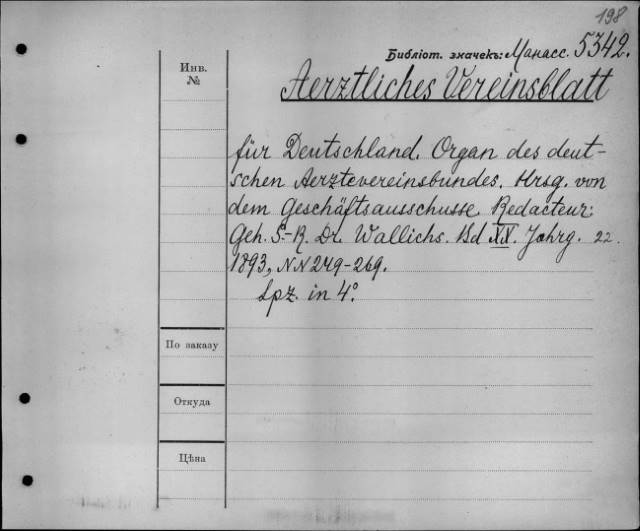 198
Библіот. значекъ: Манасс. 5342.
Инв.
№
Aerztliches Vereinsblatt
für Deutschland. Organ des deut-
schen Aerztevereinsbundes. Hrsg. von
dem Geschäftsausschusse. Redacteur:
Geh. S.-R. Dr. Wallichs. Bd XX. Jahrg. 22.
1893, NN 249-269.
Lpz. in 4°.
По заказу
Откуда
Цѣна